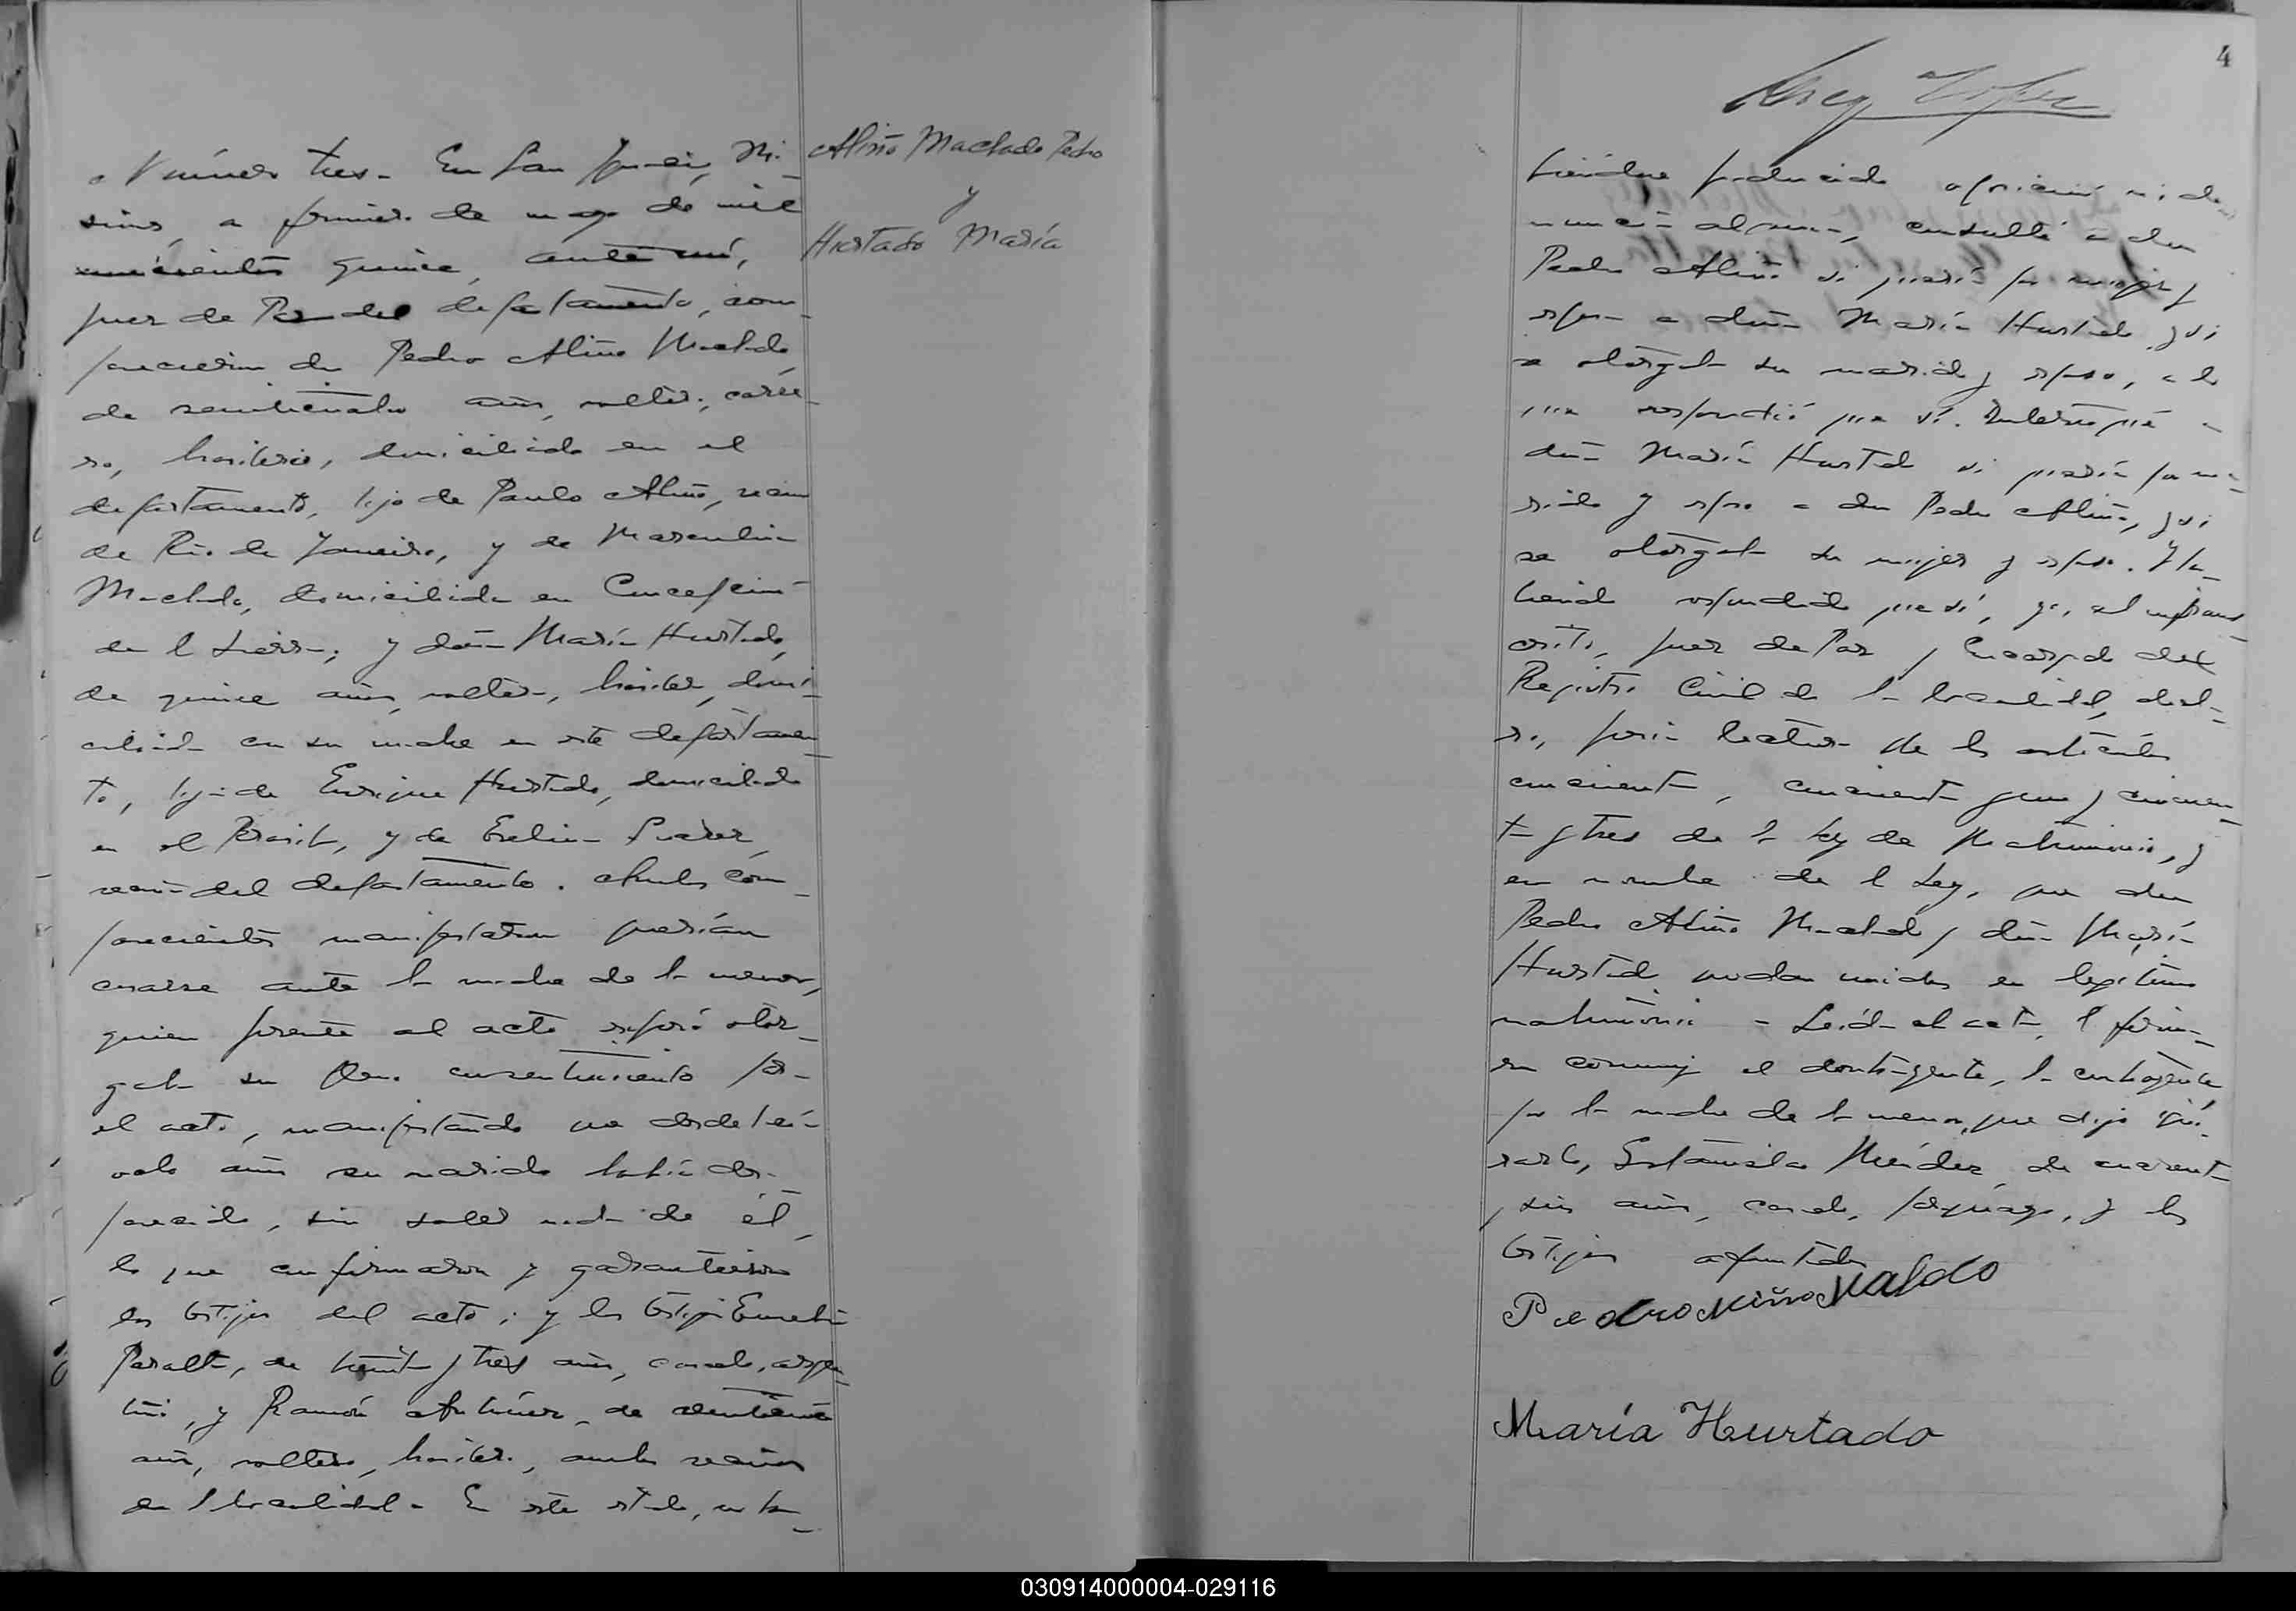 Número tres. En San Ignacio, Mi-
siones, a primero de mayo de mil
novecientos quince, ante mí,
Juez de Paz del departamento, com-
parecieron don Pedro Aliño Machado,
de veinticuatro años, soltero,
brasilero, domiciliado en el
departamento, hijo de Paulo Aliño, vecino
de Río de Janeiro, y de Marculina
Machado, domiciliada en Concepción
de la Sierra; y doña María Hurtado,
de quince años, soltera, brasilera, domi-
ciliada con su madre en este departamen-
to, hija de Enrique Hurtado, domiciliado
en el Brasil, y de Evelina Suárez,
vecina del departamento. Ambos com-
parecientes manifestaron querían
casarse ante la madre de la menor,
quien presente al acto expresó otor-
gaba su pleno consentimiento para
el acto, manifestando que desde hacía
ocho años su marido había desa-
parecido, sin saber nada de él,
lo que confirmaron y garantieron
los testigos del acto; y los testigos
Peralta, de treinta y tres años, casado, argen-
tino, y Ramón Antúnez, de
años, soltero, brasilero, ambos vecinos
de la localidad. En este estado, no ha-
Aliño Machado Pedro
y
Hurtado María
4
biéndose producido oposición ni de-
nuncia alguna, consulté a don
Pedro Aliño si quería por mujer y
esposa a doña María Hurtado y si
se otorgaba su marido y esposo, a lo
que respondió que sí. Interrogué a
doña María Hurtado si quería por ma-
rido y esposo a don Pedro Aliño, y si
se otorgaba su mujer y esposa. Y ha-
biendo respondido que sí, yo, el infrans-
crito, Juez de Paz y Encargado del
Registro Civil de la localidad, decla-
ro, previa lectura de los artículos
cincuenta, cincuenta y uno y cincuen-
ta y tres de la ley de Matrimonio, y
en nombre de la Ley, que don
Pedro Aliño Machado y doña María
Hurtado quedan unidos en legítimo
matrimonio. Leída el acta, la firma-
ron conmigo el contrayente, la contrayente,
por la madre de la menor, que dijo igno-
rarlo, Estanislao Méndez, de cuarenta
y seis años, casado, paraguayo, y los
testigos apuntados
Pedro
María Hurtado
030914000004-029116